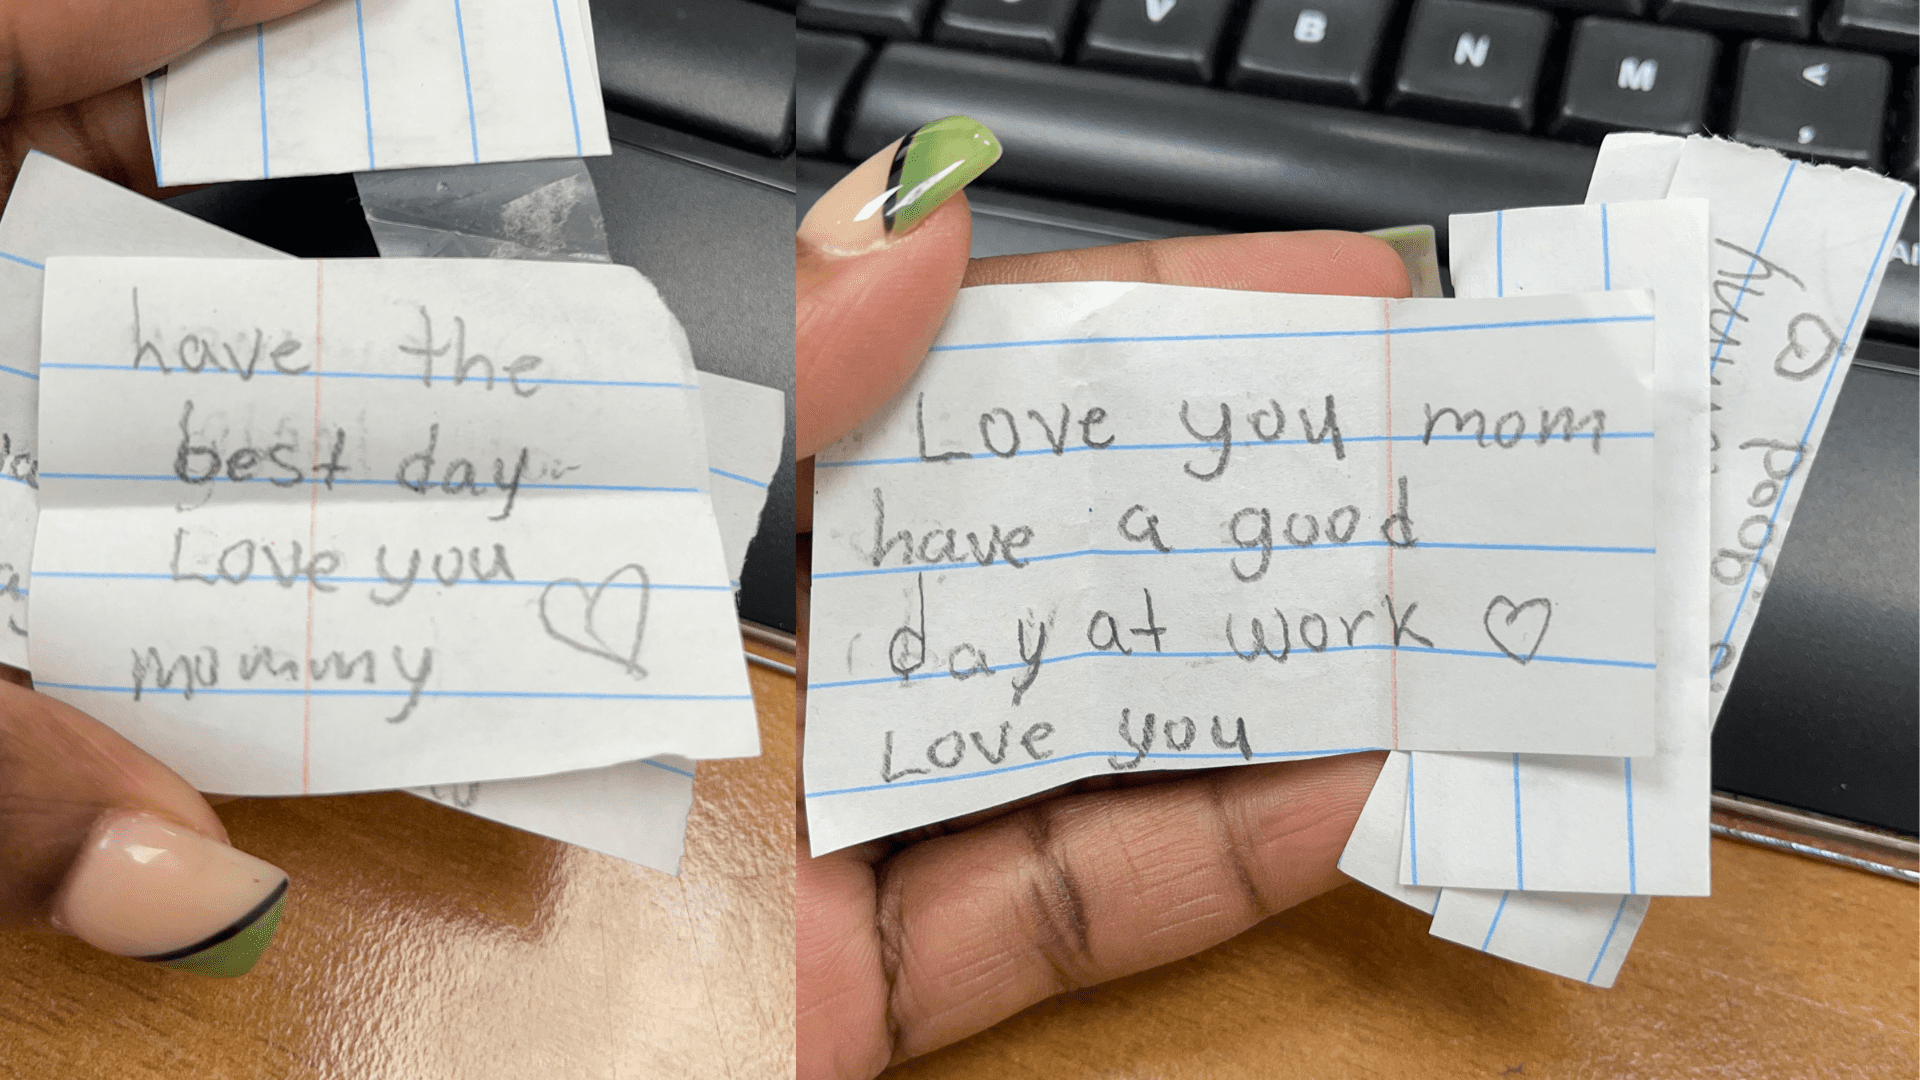 have the
best day
Love you
mommy
Love you mom
have a good
day at work
Love you
V B N M